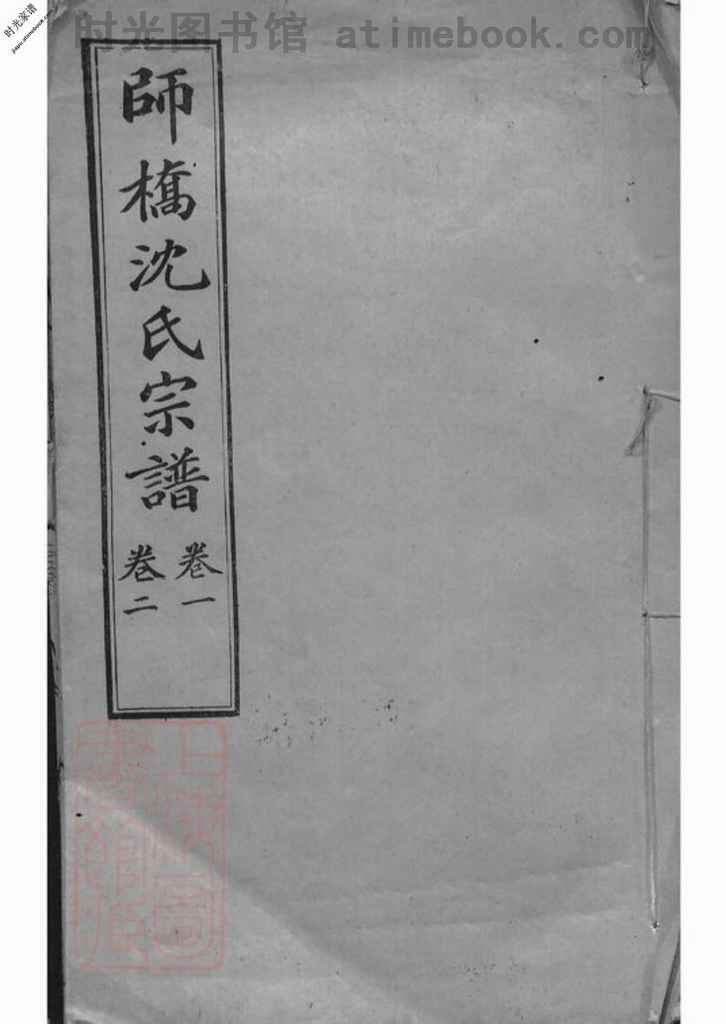 时光图书馆 atimebook.com
时光家谱
師橋沈氏宗譜
卷一
卷二